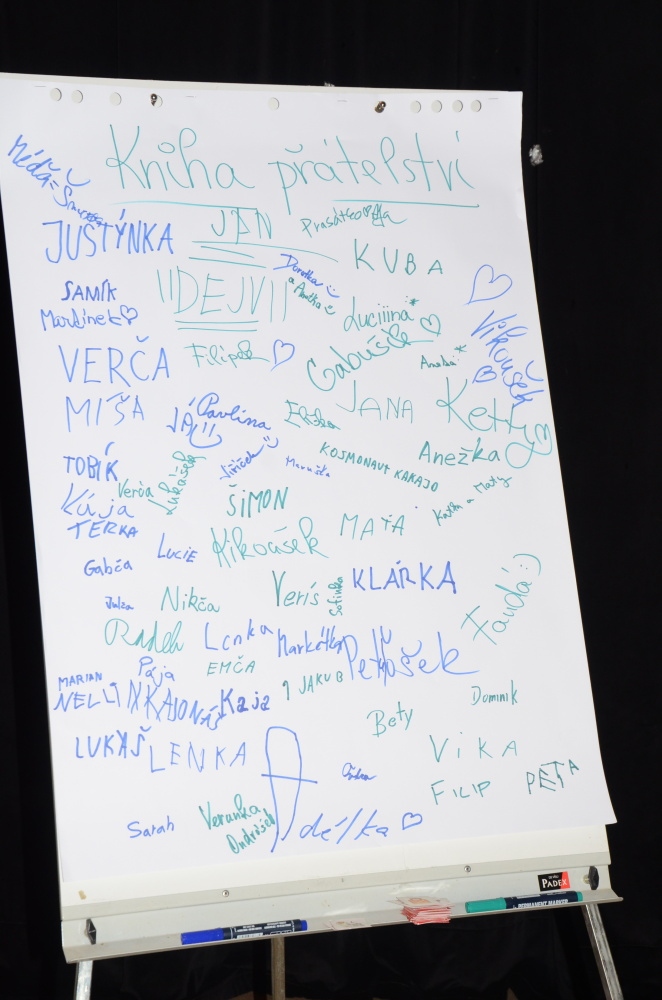 Kniha přátelství
Méďa=
JUSTÝNKA
JAN
KUBA
SAMÍK
Martínek♡
"DEJV"
Dorotka
a Anežka
Luciiina*
♡
Vikoušek
VERČA
Filípek ♡
Gabúšik
MÍŠA
JÁ!!
Pavlína
Eliška
JANA
Ketty♡
TOBÍK
Verča
Lukášek
Jiříček
Maruška
KOSMONAUT KAKAJO
Anežka
Kája
ŠIMON
Katka a Matty
TERKA
Gabča
LUCIE
Kikoušek
MAŤA
Julza
Nikča
Veris
Sofinka
KLÁRKA
Fanda :)
Radek
Lenka
Markétka
Peťošek
MARIAN
Pája
EMČA
NELLINKA
JONÁŠ
Kaja
JAKUB
Dominik
LUKÁŠ
LENKA
Bety
VIKA
FILIP
PÉŤA
Sarah
Verunka
Ondrášek
Adélka ♡
PADEX
PERMANENT MARKER